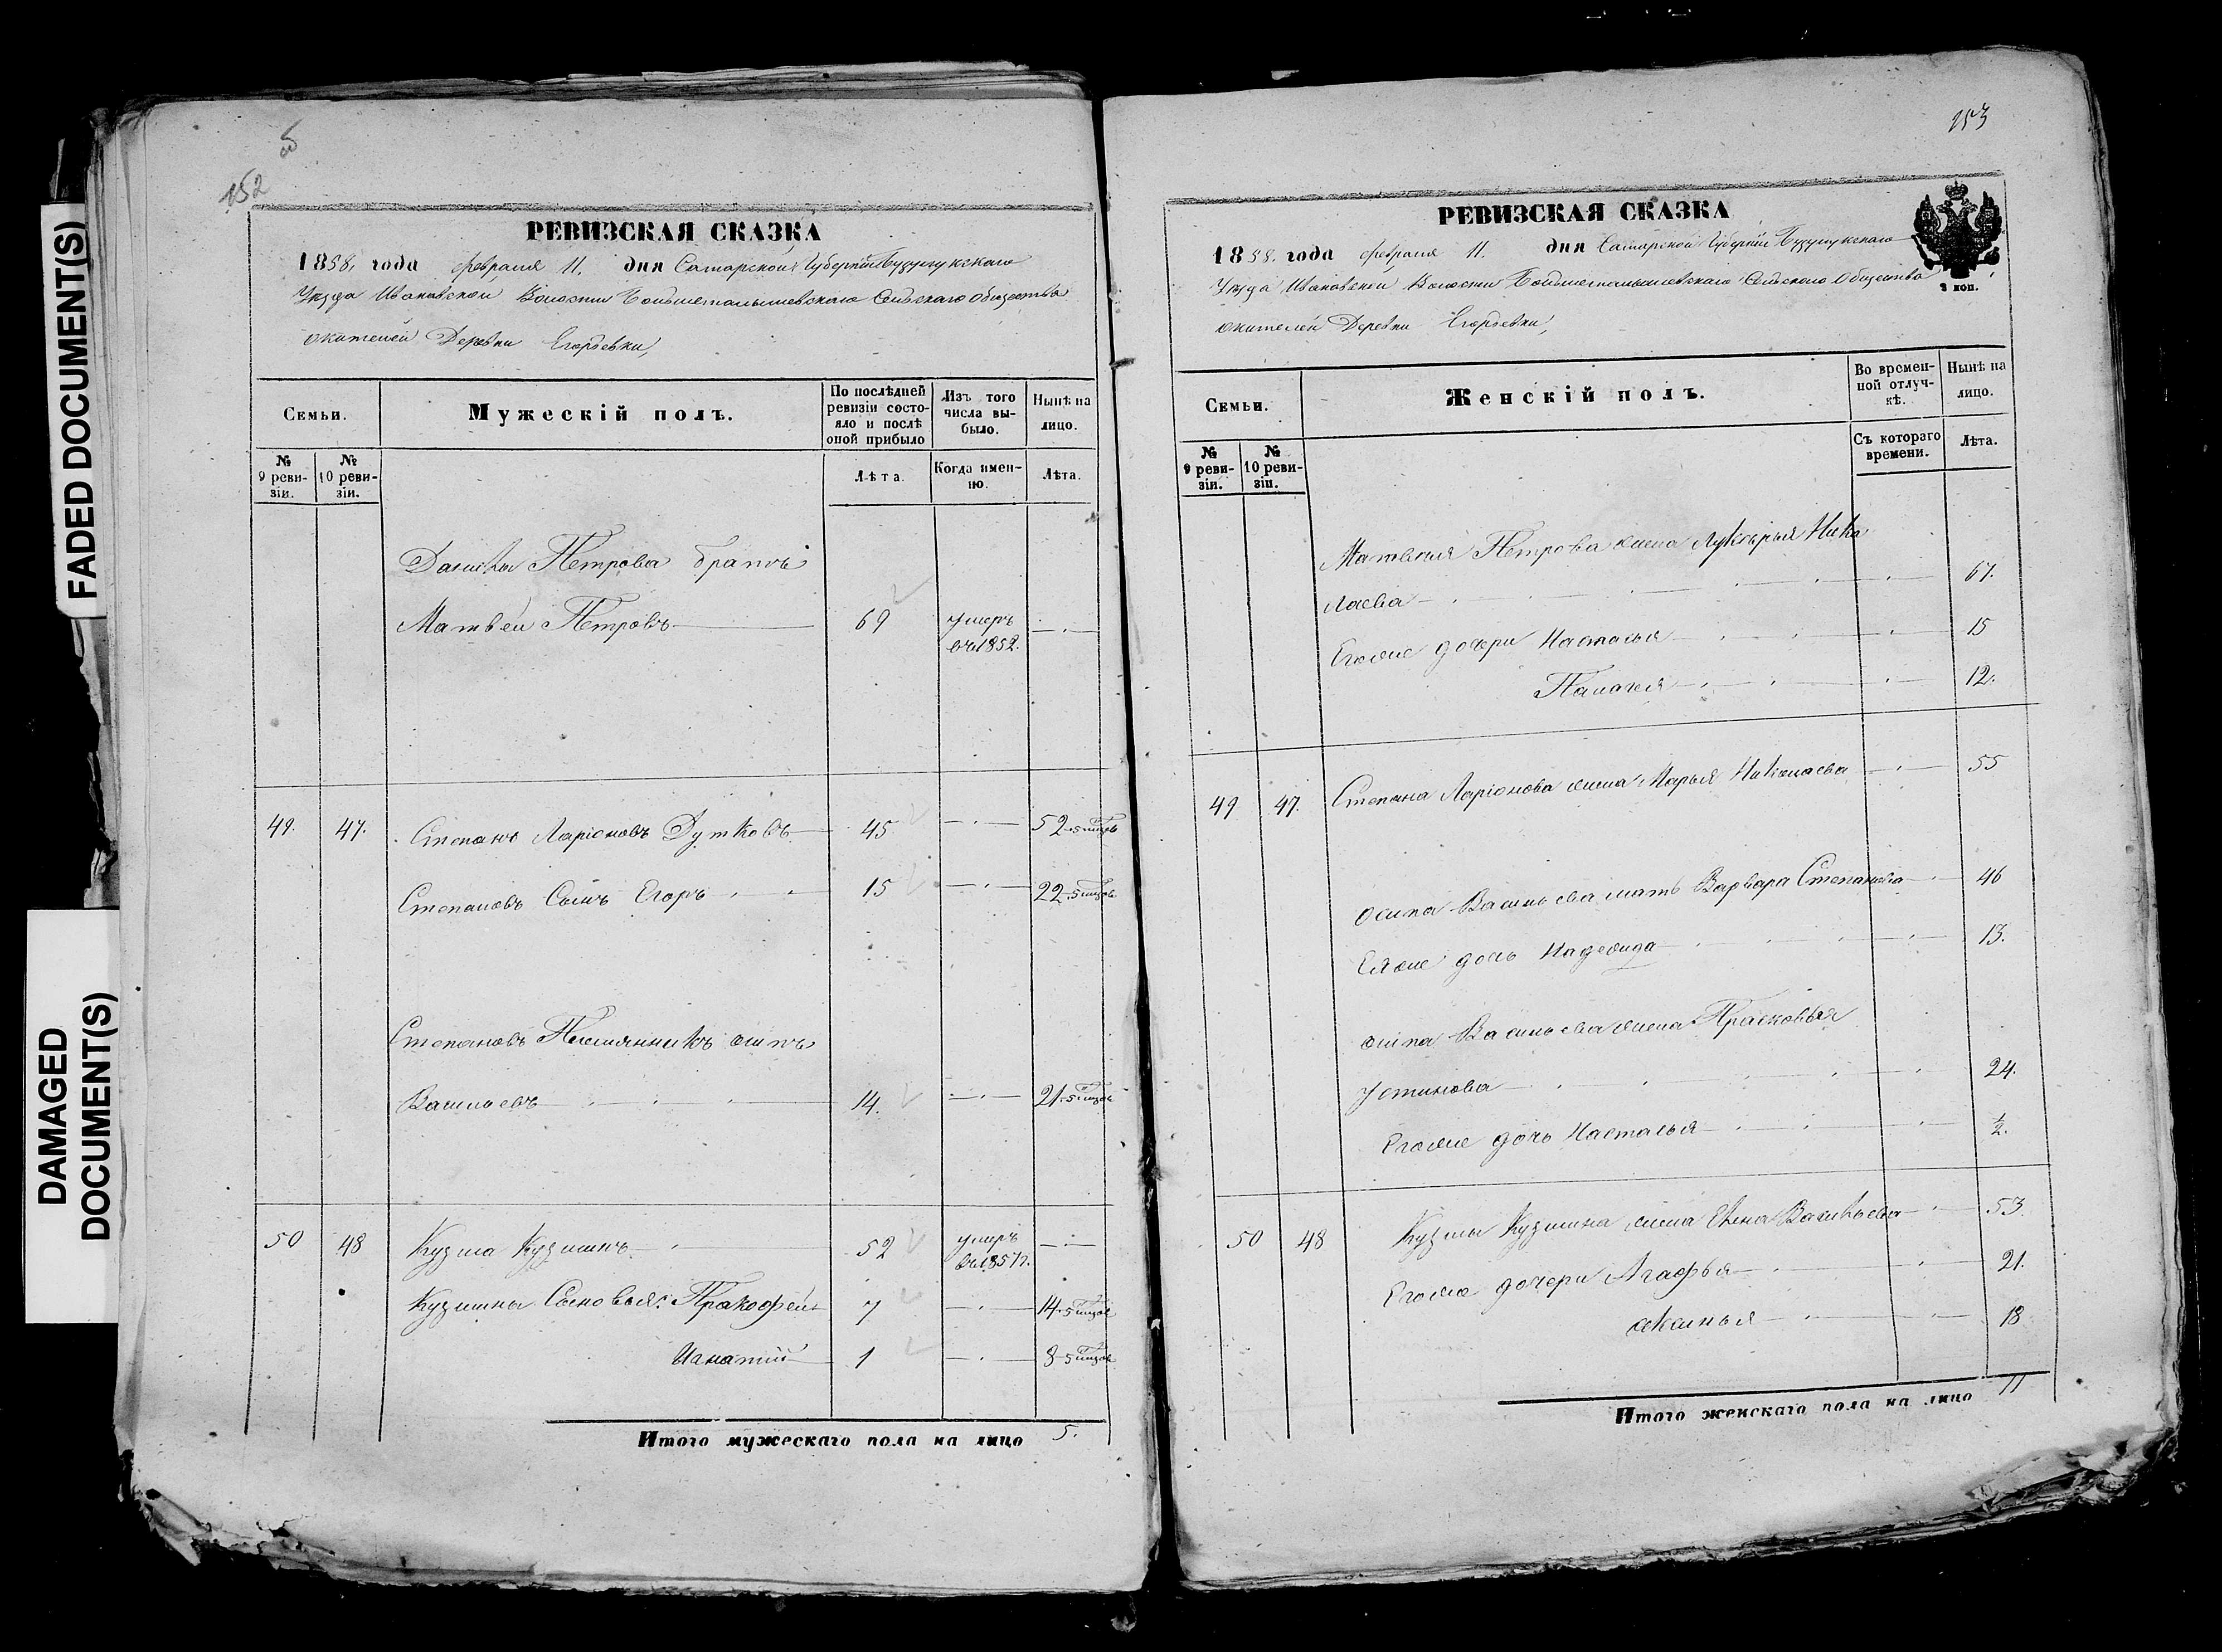 FADED DOCUMENT(S)
DAMAGED
DOCUMENT(S)
152
РЕВИЗСКАЯ СКАЗКА
1858. года февраля 11. дня Самарской Губернiи Бузулукскаго
Уѣзда Ивановской Волости Сельскаго Общества
жителей Деревни Егорьевки,
Семьи.
Мужескiй полъ.
По послѣдней ревизiи состояло и послѣ оной прибыло
Изъ того числа выбыло.
Нынѣ на лицо.
№ 9 ревизiи.
№ 10 ревизiи.
Лѣта.
Когда именно.
Лѣта.
Данила Петрова братъ
Матвей Петровъ 69 умеръ въ 1852.
49. 47. Степанъ Ларiоновъ Дутковъ 45 52
Степановъ Сынъ Егоръ 15 22
Степановъ Племянникъ Осипъ
Васильевъ 14. 21
50 48 Кузма Кузминъ 52 умеръ въ 1857г.
Кузмины Сыновья: Прокофей 7 14
Игнатий 1 8
Итого мужескаго пола на лицо 5.
153
РЕВИЗСКАЯ СКАЗКА
1858. года февраля 11. дня Самарской Губернiи Бузулукскаго
Уѣзда Ивановской Волости Сельскаго Общества
жителей Деревни Егорьевки,
2 коп.
Семьи.
Женскiй полъ.
Во временной отлучкѣ.
Нынѣ на лицо.
№ 9 ревизiи.
№ 10 ревизiи.
Съ котораго времени.
Лѣта.
Матвѣия Петрова жена Лукерья Нико
лаева 67.
Егоже дочери Настасья 15
Палагея 12.
49 47. Степана Ларiонова жена Марья Николаева 55
Осипа Васильева мать Варвара Степанова 46
Еяже дочь Надежда 13.
Осипа Васильева жена Прасковья
Устинова 24.
Егоже дочь Настасья ½.
50 48 Кузмы Кузмина жена Елена Васильева 53
Егоже дочери Агафья 21.
Аксинья 18
Итого женскаго пола на лицо 11